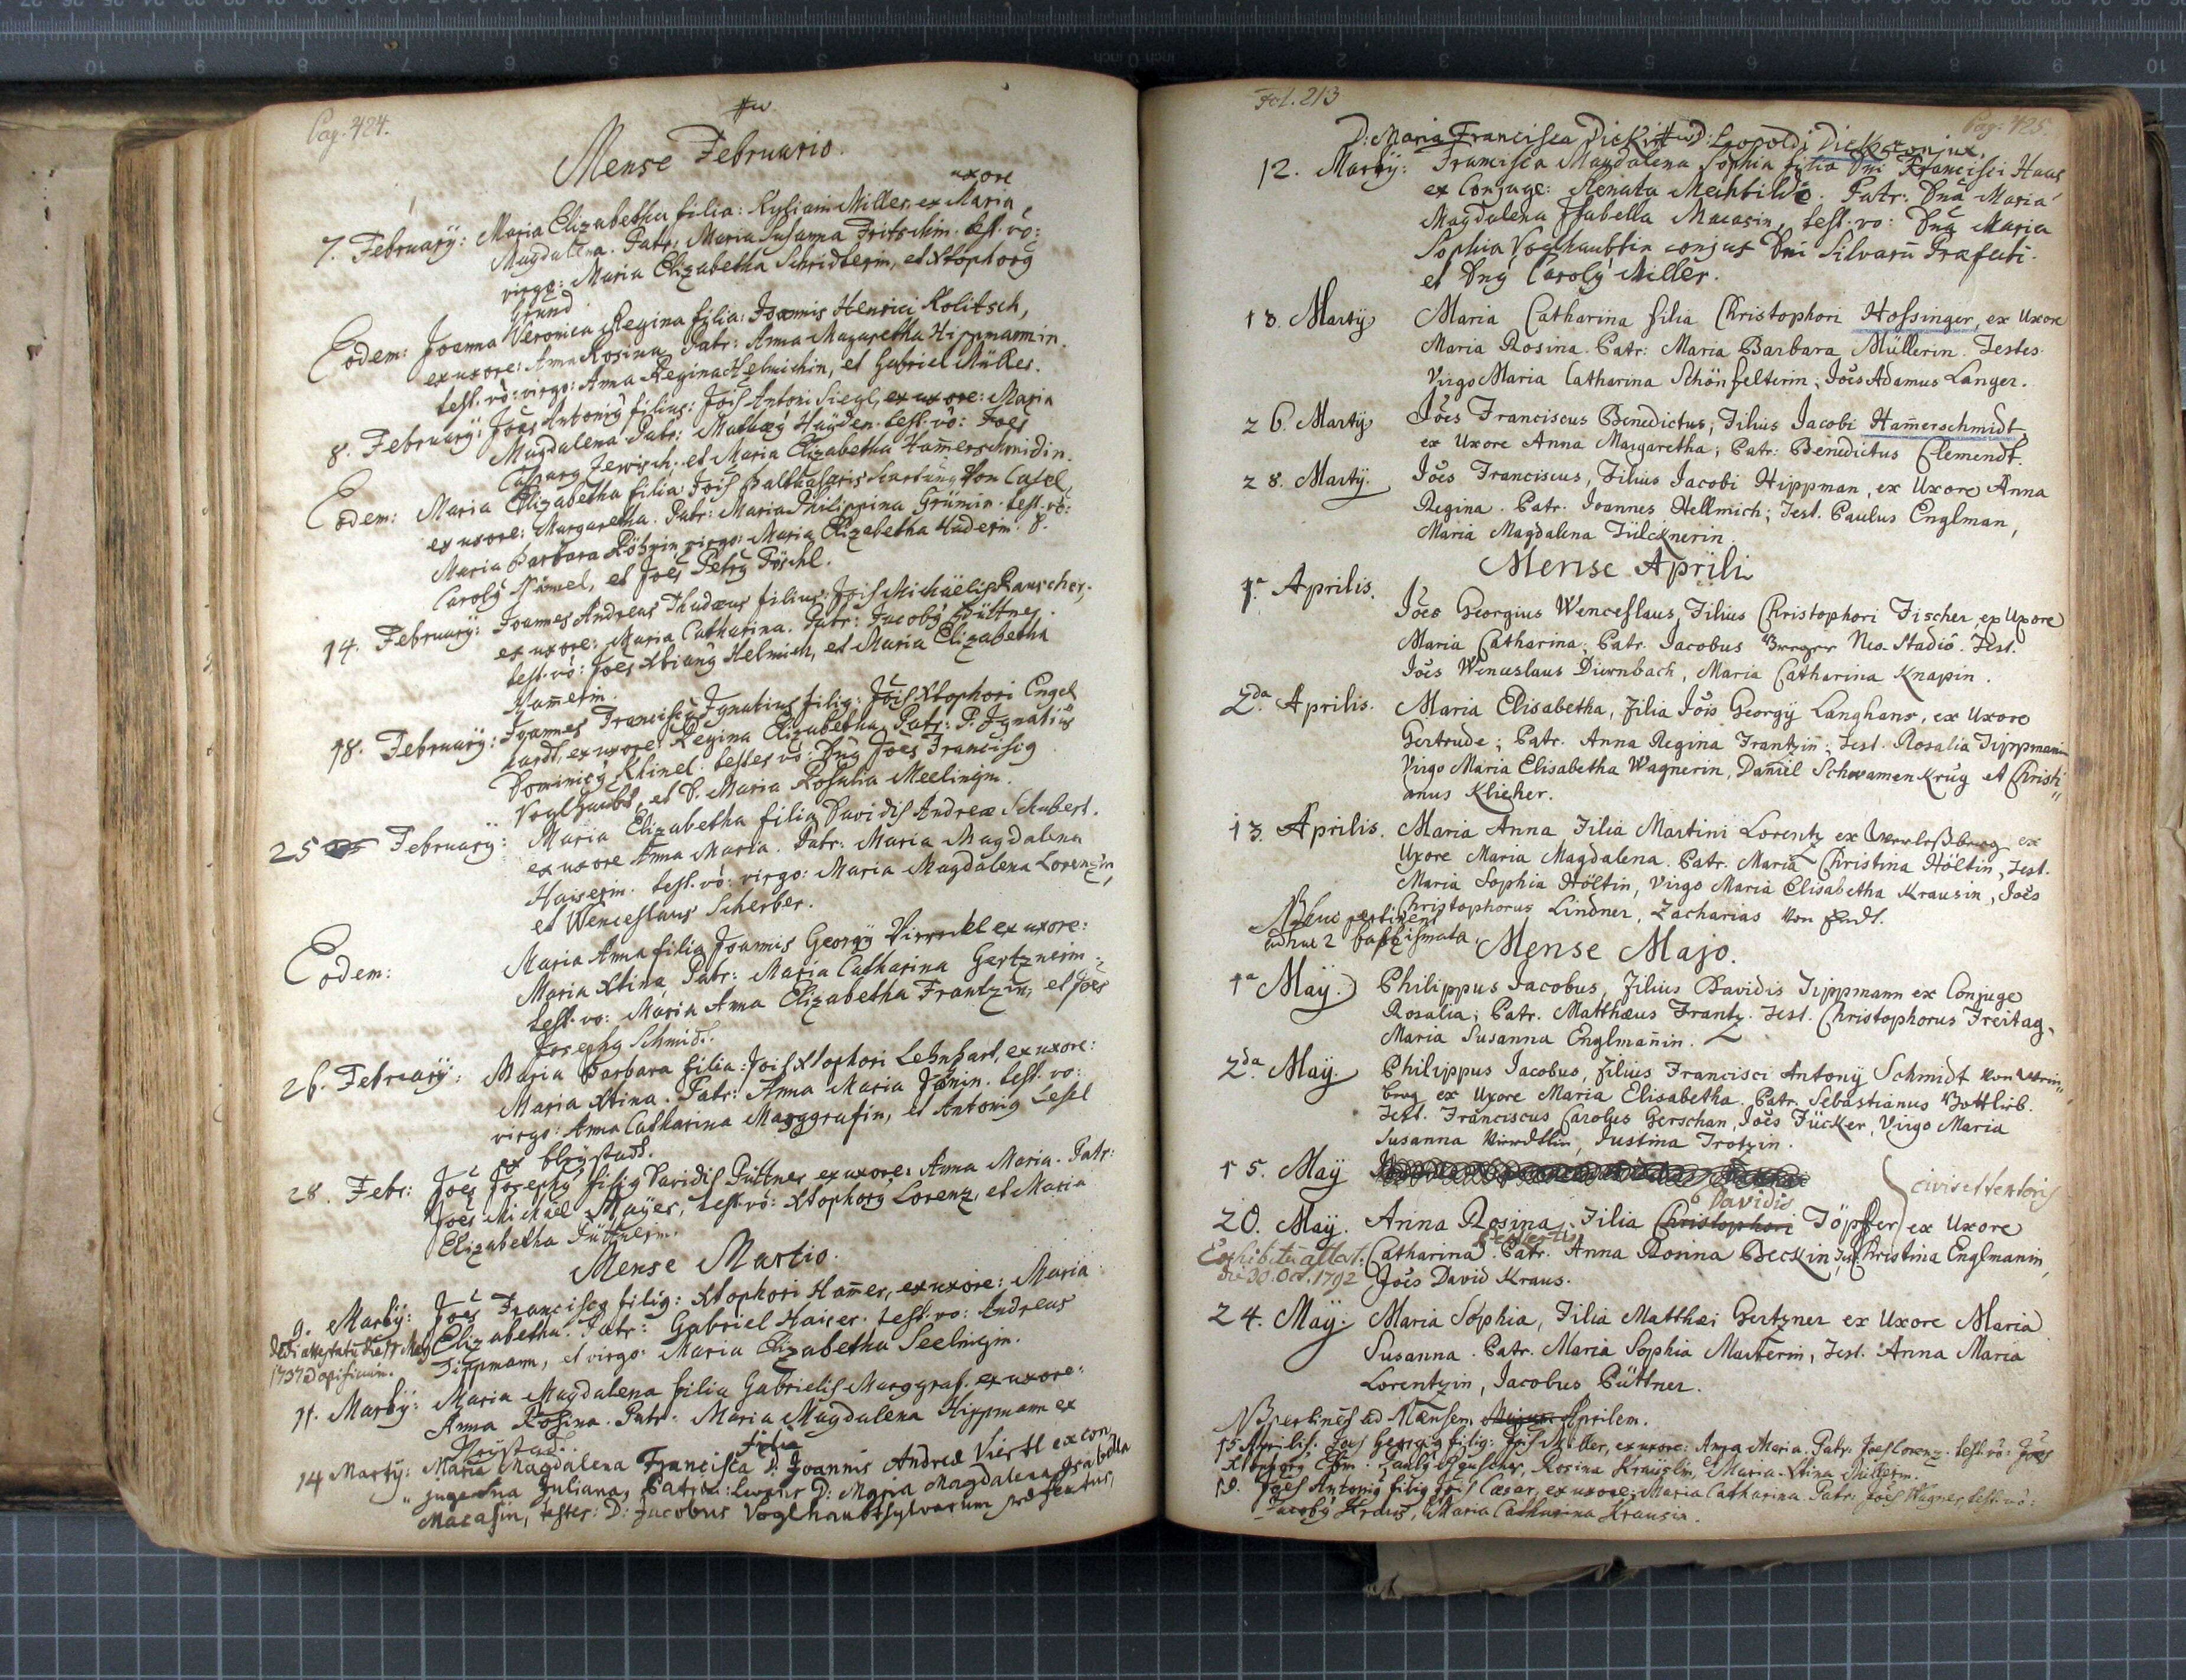 Pag. 424.
Mense Februario.
uxore
7. Februarÿ: Maria Elizabetha filia: Kyliani Miller, ex Maria
Magdalena. Patr: Maria Susanna Fritschin. test. vò:
virgo: Maria Elizabetha Schridterin, et Xtophorg
Grund
Eodem: Joanna Veronica Regina filia: Joannis Henrici Kolitsch,
ex uxore: Anna Rosina, Patr: Anna Margaretha Hippmannin.
test. vò: virgo: Anna Regina Helmichin, et Gabriel Müller.
8. Februarÿ: Joës Antonig filius: Jois Antoni Siegl, ex uxore: Maria
Magdalena. Patr: Mathæg Hayden. test. vò: Joës
Casparg Jewisch, et Maria Elizabetha Ham̄erschmidin.
Eodem: Maria Elizabetha filia Jois Balthasaris Hartung von Casel,
ex uxore: Margaretha. Patr: Maria Philippina Grümin. test. vò:
Maria Barbara virgo: Maria Elizabetha Haderin. D.
Carolg et Joës Petrg Pöschl.
14. Februarÿ: Joannes Andreas Thadæus filius: Jois Michäelis Rauscher,
ex uxore: Maria Catharina. Patr: Jacobg Püttner.
test. vò: Joës Xtiang Helmich, et Maria Elizabetha
Ham̄erin.
18. Februarÿ: Joannes Franciscg Ignatius filig: Jois Xtophori Engel
hardt, ex uxore: Regina Elizabetha, Patr: P. Ignatius
Dominicg Klinel. testes vò: Dn̄g Joës Franciscg
Voglhaubt, et V. Maria Rosalia Meelingin.
25 Februarÿ: Maria Elizabetha filia Davidis Andreæ Schubert.
ex uxore Anna Maria. Patr: Maria Magdalena
Haiserin. test. vò: virgo: Maria Magdalena Lorenzin,
et Wenceslaus Scherber.
Eodem: Maria Anna filia Joannis Georgÿ ex uxore:
Maria Xtina, Patr: Maria Catharina Gertznerin
test. vo: Maria Anna Elizabetha Frantzin, et Joës
Josephg Schmidt.
26. Februarÿ: Maria Barbara filia: Jois Xtophori Lehnhart, ex uxore:
Maria Xtina. Patr: Anna Maria test. vo:
virgo: Anna Catharina Marggrafin, et Antonig Lesel
ex bleystadt.
28. Febr: Joës Josephg filig Davidis Püttner, ex uxore: Anna Maria. Patr:
Joës Michael Mayer, test. vò: Xtophorg Lorenz, et Maria
Elizabetha Püttnerin.
Mense Martio.
9. Martÿ: Joës Franciscg filig: Xtophori Ham̄er, ex uxore: Maria
Elizabetha. Patr: Gabriel Haiser. test. vo: Andreas
1737
Tippmann, et virgo: Maria Elizabetha Seelingin.
11. Martÿ: Maria Magdalena filia Gabrielis Marggraf. ex uxore:
Anna Rosina. Patr: Maria Magdalena Hippmann ex
filia
14 Martÿ: Maria Magdalena Francisca D: Joannis Andreæ Viertl ex con
juge sua Juliana, Patrin: D: Maria Magdalena Isabella
Macasin, testes: D: Jacobus Voglhaubt sylvarum præfectus,
Fol. 213
Pag: 425.
D: Maria Francisca Dickin D: Leopoldi Dick conjux.
12. Martÿ: Francisca Magdalena Sophia filia Dn̄i Francisci Haas
ex Conjuge: Renata Mechtilde. Patr: Dn̄a Maria
Magdalena Isabella Macasin, test. vo: Dn̄a Maria
Sophia Voglhaubtin conjux Dn̄i Silvarū Præfecti.
et Dn̄g Carolg Miller.
13. Martÿ Maria Catharina filia Christophori Hossinger, ex Uxore
Maria Rosina. Patr: Maria Barbara Müllerin. Testes
Virgo Maria Catharina Schönfelterin, Joës Adamus Langer.
26. Martÿ Joës Franciscus Benedictus, Filius Jacobi Ham̄erschmidt
ex Uxore Anna Margaretha; Patr: Benedictus Clemendt.
28. Martÿ. Joës Franciscus, Filius Jacobi Hippman, ex Uxore Anna
Regina. Patr. Joannes Hellmich; Test. Paulus Englman,
Maria Magdalena Fülcknerin.
Mense Aprili
1.a Aprilis. Joës Georgius Wenceslaus, Filius Christophori Fischer, ex Uxore
Maria Catharina; Patr. Jacobus Berger Neo-Stadio. Test.
Joës Wenceslaus Dürnbach, Maria Catharina Knapin.
2da. Aprilis. Maria Elisabetha, Filia Jois Georgÿ Langhans, ex Uxore
Gertrude; Patr. Anna Regina Frantzin; Test. Rosalia Tippmanin
Virgo Maria Elisabetha Wagnerin, Daniel Schwamenkrug et Christi
anus Klieher.
13. Aprilis. Maria Anna Filia Martini Lorentz ex ex
Uxore Maria Magdalena. Patr. Maria Christina Höltin, Test.
Maria Sophia Höltin, Virgo Maria Elisabetha Krausin, Joës
Christophorus Lindner, Zacharias von
NB huc pertinent
adhuc 2 baptismata.
Mense Majo.
1a Maÿ. Philippus Jacobus, Filius Davidis Tippmann ex Conjuge
Rosalia; Patr. Matthæus Frantz. Test. Christophorus Freitag,
Maria Susanna Englman̄in.
2da. Maÿ. Philippus Jacobus, Filius Francisci Antonÿ Schmidt von
berg ex Uxore Maria Elisabetha. Patr. Sebastianus Gottlieb.
Test. Franciscus Carolus Gerschan, Joës Fücker, Virgo Maria
Susanna Justina Trotzin.
15. Maÿ
Davidis
civis et textoris
20. Maÿ. Anna Rosina, Filia Christophori Töpffer ex Uxore
Exhibita attest. Catharina. Patr. Anna Rosina Beckin, Test. Christina Englmanin,
die 20. Oct. 1792 Joës David Kraus.
24. Maÿ. Maria Sophia, Filia Matthæi Gertzner ex Uxore Maria
Susanna. Patr. Maria Sophia Marterin, Test. Anna Maria
Lorentzin, Jacobus Püttner.
NB pertines ad Mensem Aprilem.
15 Aprilis. Joës Georgig filig: Jois Miller, ex uxore: Anna Maria. Patr: Joës Lorenz. test. vò: Joës
Xtophorg Paulg Rosina Maria Xtina Millerin.
19. Joës Antonig filig Jois Cæsar, ex uxore: Maria Catharina. Patr: Joës Wagner, test. vò:
Jacobg Kraus, Maria Catharina Krausin.